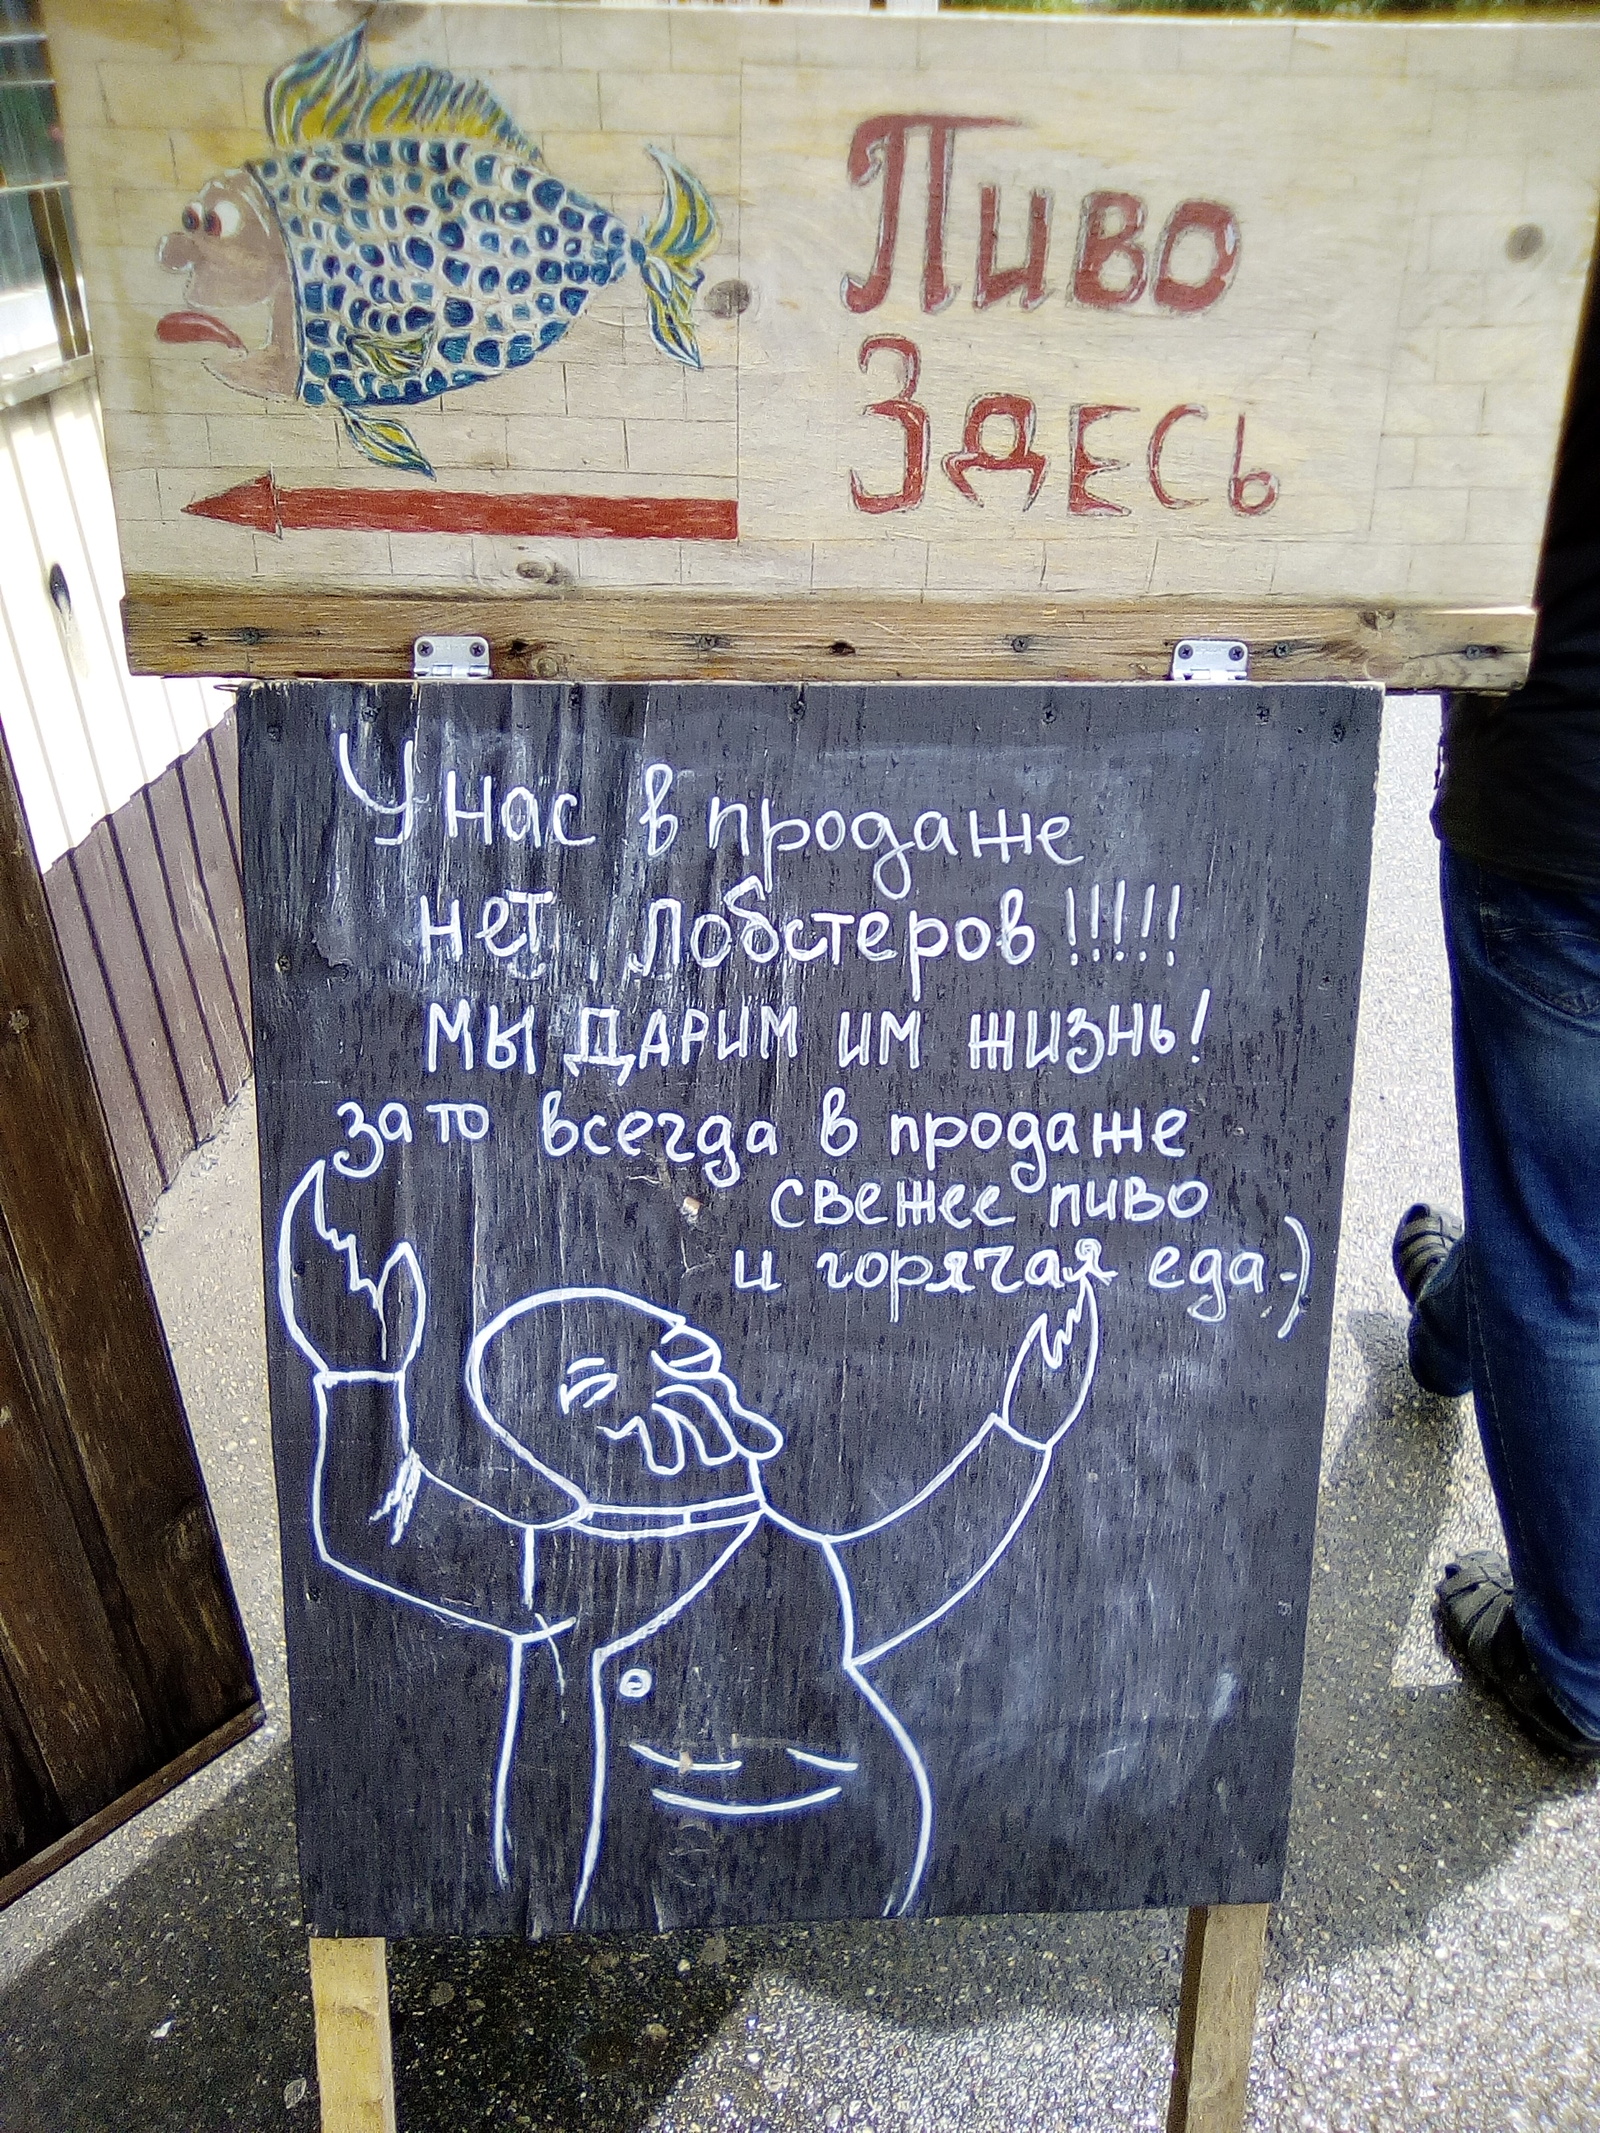 Пиво
Здесь
У нас в продаже
нет лобстеров!!!!!
МЫ ДАРИМ ИМ ЖИЗНЬ!
зато всегда в продаже
свежее пиво
и горячая еда-)